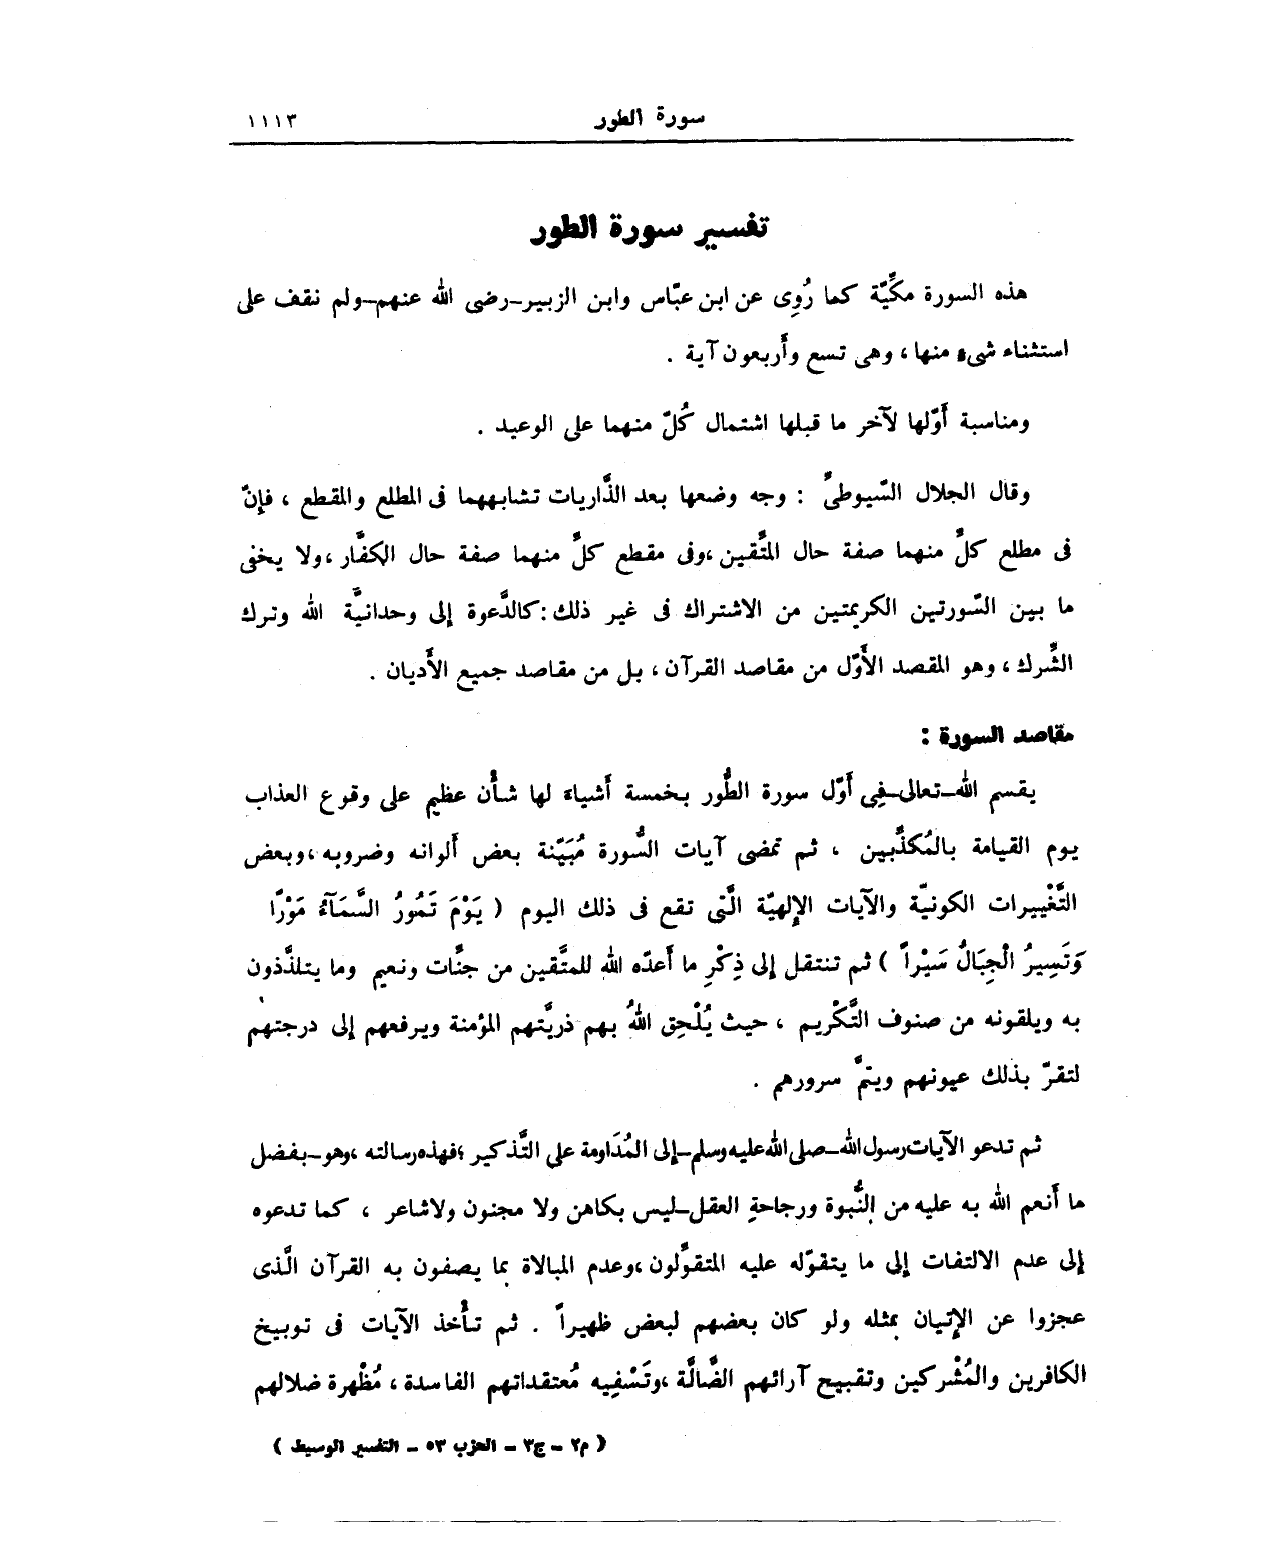 سورة الطور ١١١٣
تفسير سورة الطور
هذه السورة مكِّيّة كما رُوِى عن ابن عبّاس وابن الزبير–رضى الله عنهم–ولم نقف على
استثناء شىء منها ، وهى تسع وأَربعون آية .
ومناسبة أَوّلها لآخر ما قبلها اشتمال كُلّ منهما على الوعيد .
وقال الجلال السّيوطىّ : وجه وضعها بعد الذَّاريات تشابههما فى المطلع والمقطع ، فإِنّ
فى مطلع كلٍّ منهما صفة حال المتَّقين ،وفى مقطع كلٍّ منهما صفة حال الكفَّار ،ولا يخفى
ما بين السّورتين الكريمتين من الاشتراك فى غير ذلك :كالدَّعوة إلى وحدانيَّة الله وترك
الشِّرك ، وهو المقصد الأَوّل من مقاصد القرآن ، بل من مقاصد جميع الأَديان .
مقاصد السورة :
يقسم الله–تعالى–فِى أَوّل سورة الطُّور بخمسة أَشياء لها شأْن عظيم على وقوع العذاب
يوم القيامة بالمُكذِّبين ، ثم تمضى آيات السُّورة مُبَيّنة بعض أَلوانه وضروبه ،وبعض
التَّغْييرات الكونيّة والآيات الإِلهيّة الَّتى تقع فى ذلك اليوم ( يَوْمَ تَمُورُ السَّمَآءُ مَوْرًا
وَتَسِيرُ الْجِبَالُ سَيْراً ) ثم تنتقل إلى ذِكْرِ ما أَعدّه الله للمتَّقين من جنَّات ونعيم وما يتلذَّذون
به ويلقونه من صنوف التَّكْريم ، حيث يُلْحِق اللهُ بهم ذريَّتهم المؤمنة ويرفعهم إلى درجتهم
لتقرّ بذلك عيونهم ويتمَّ سرورهم .
ثم تدعو الآيات رسول الله–صلى الله عليه وسلم–إلى المُدَاومة على التَّذكير ؛فهذه رسالته ،وهو–بفضل
ما أَنعم الله به عليه من النُّبوة ورجاحةِ العقل–ليس بكاهن ولا مجنون ولاشاعر ، كما تدعوه
إلى عدم الالتفات إلى ما يتقوّله عليه المتقوِّلون ،وعدم المبالاة بما يصفون به القرآن الَّذى
عجزوا عن الإِتيان بمثله ولو كان بعضهم لبعض ظهيراً . ثم تأْخذ الآيات فى توبيخ
الكافرين والمُشْركين وتقبيح آرائهم الضَّالَّة ،وتَسْفِيه مُعتقداتهم الفاسدة ، مُظْهرة ضلالهم
( م٢ – ج٣ – الحزب ٥٣ – التفسير الوسيط )